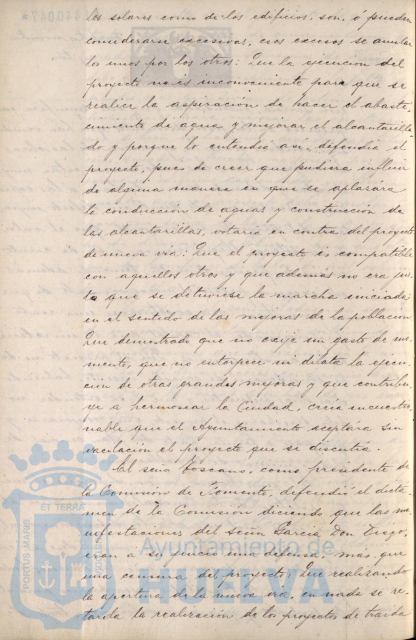 los solares como de los edificios, son, ó pueden
considerarse excesivos, esos excesos se anulan
los unos por los otros: Que la ejecucion del
proyecto no es inconveniente para que se
realice la aspiracion de hacer el abaste-
cimiento de agua y mejorar el alcantarilla-
do y porque lo entendia asi, defendia el
proyecto, pues de creer que pudiera influir
de alguna manera en que se aplazara
la conduccion de aguas y construccion de
las alcantarillas, votaria en contra del proyecto
de nueva via: Que el proyecto es compatible
con aquellos otros y que ademas no era jus-
to que se detuviese la marcha iniciada
en el sentido de las mejoras de la poblacion
Que demostrado que no exije un gasto de mo-
mento, que no entorpece ni dilata la ejecu-
cion de otras grandes mejoras y que contribu-
ye a hermosear la Ciudad, creia incuestio-
nable que el Ayuntamiento aceptara sin
vacilacion el proyecto que se discutia.
El señor Toscano, como presidente de
la Comision de Fomento, defendió el dicta-
men de la Comision diciendo que las ma-
nifestaciones del señor Garcia Don Diego,
eran a su juicio una defensa mas que
una censura del proyecto: Que realizando
la apertura de la nueva via, en nada se re-
tarda la realizacion de los proyectos de traida
PORTUS MARIS
ET TERRAE
Ayuntamiento de
HUELVA